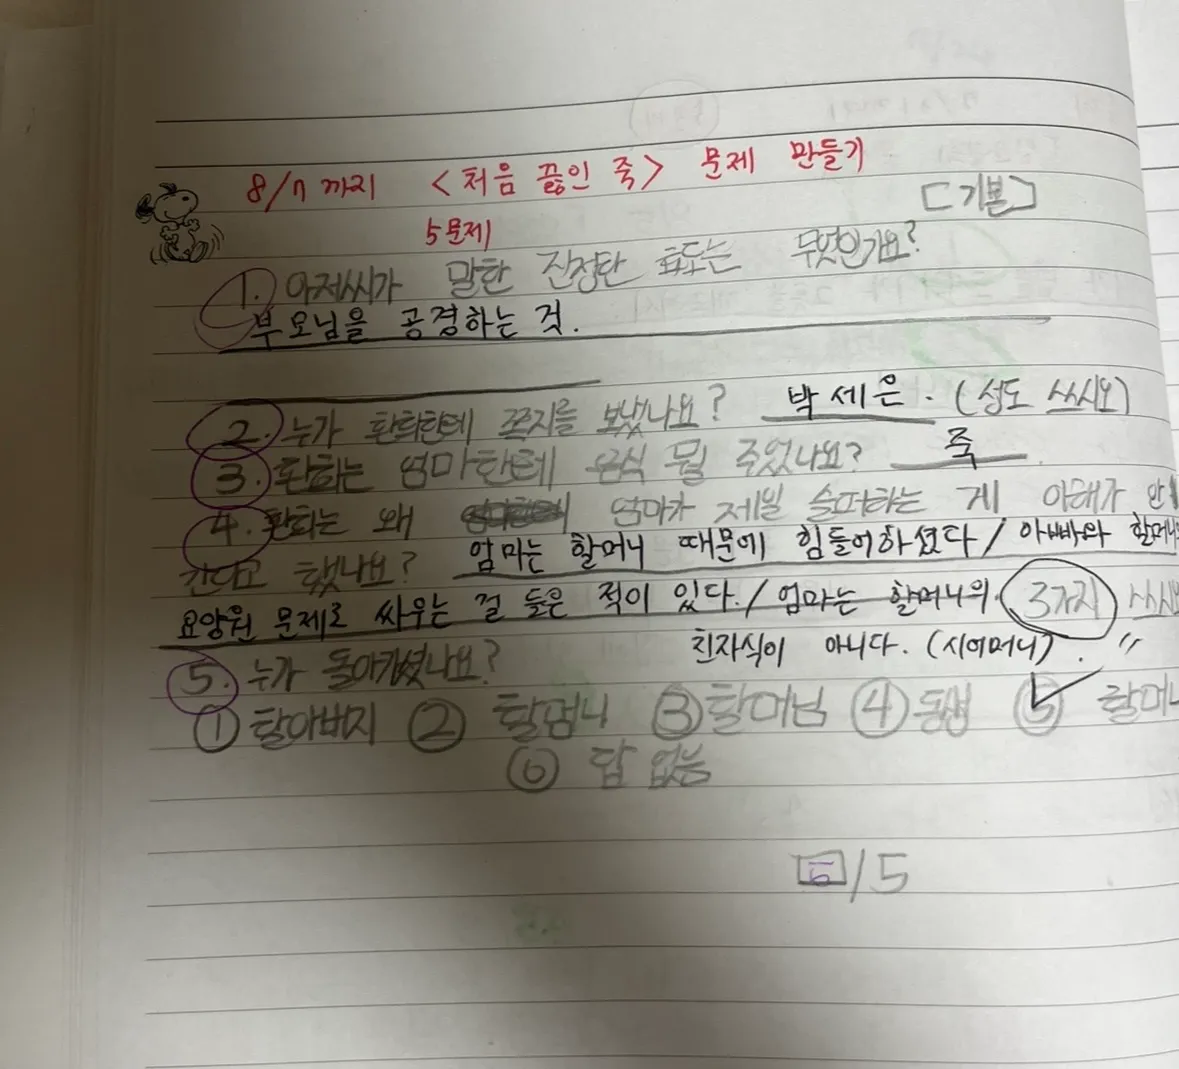 8/7까지 <처음 끓인 죽> 문제 만들기
[기본]
5문제
1. 아저씨가 말한 진정한 효도는 무엇인가요?
부모님을 공경하는 것.
2. 누가 환희한테 쪽지를 보냈나요? 박세은. (성도 쓰시오)
3. 환희는 엄마한테 음식 뭘 주었나요? 죽
4. 환희는 왜 엄마가 제일 슬퍼하는 게 이해가 안
간다고 했나요? 엄마는 할머니 때문에 힘들어하셨다/ 아빠와 할머니
요양원 문제로 싸우는 걸 들은 적이 있다./ 엄마는 할머니의 3가지 쓰시오
친자식이 아니다. (시어머니).〃
5. 누가 돌아가셨나요?
① 할아버지 ② 할멈니 ③ 할머님 ④ 동생 ⑤ 할머니
⑥ 답 없음
5/5